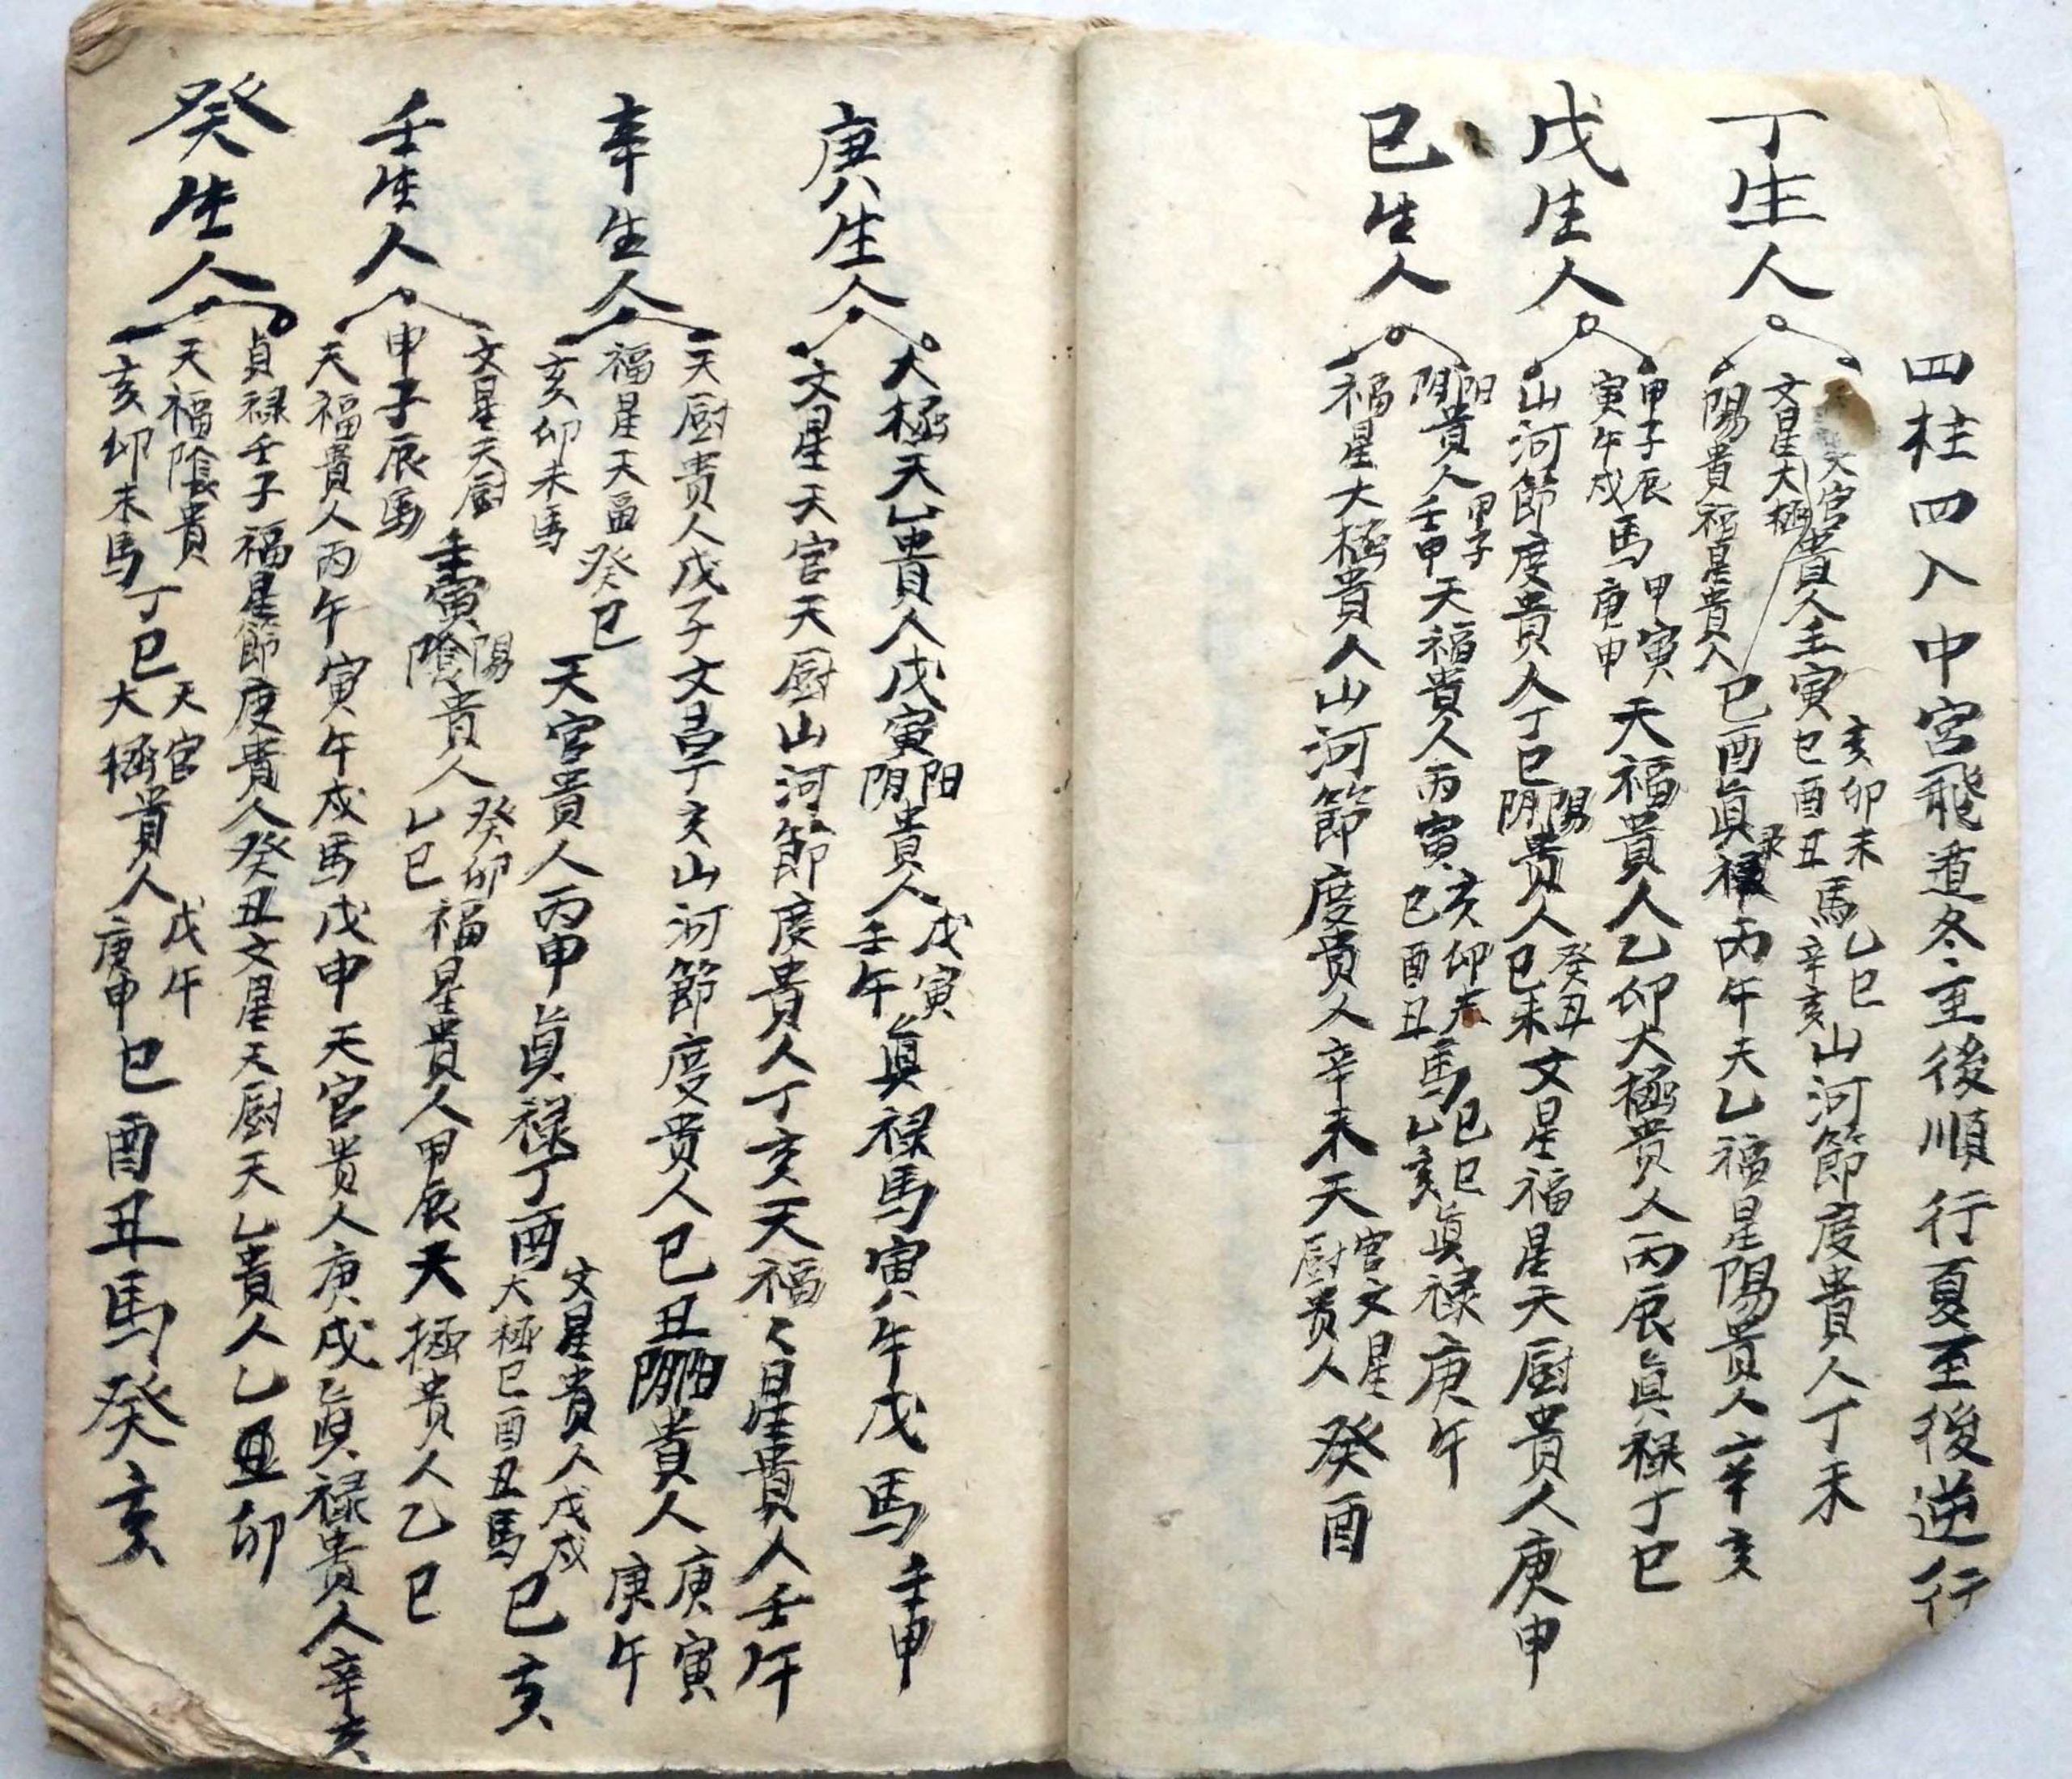 四柱四入中宮飛遁冬至後順行夏至後逆行
丁生人
天官貴人壬寅亥卯未巳酉丑馬乙巳辛亥山河節度貴人丁未
文星大極
陽貴福星貴人己酉眞禄丙午天乙福星陽貴人辛亥
戊生人
甲子辰寅午戌馬甲寅庚申天福貴人乙卯大極貴人丙辰眞禄丁巳
山河節度貴人丁巳陽阴貴人癸丑己未文星福星天厨貴人庚申
己生人
阳阴貴人甲子壬申天福貴人丙寅亥卯未巳酉丑馬己巳乙亥眞禄庚午
福星大極貴人山河節度貴人辛未天官文星厨贵人癸酉
庚生人
大極天乙貴人戊寅阳阴貴人戊寅壬午眞禄馬寅午戌馬壬申
文星天官天厨山河節度貴人丁亥天福〻星貴人壬午
辛生人
天厨贵人戊子文昌丁亥山河節度贵人己丑阴阳貴人庚寅庚午
福星天畐癸巳
亥卯未馬
天官貴人丙申眞禄丁酉文星貴人戊戌大極巳酉丑馬己亥
壬生人
文星天厨
甲子辰馬
壬寅陽陰貴人癸卯乙巳福星貴人甲辰天極貴人乙巳
天福貴人丙午寅午戌馬戊申天官贵人庚戌眞禄貴人辛亥
癸生人
貞禄壬子福星節度貴人癸丑文星天厨天乙貴人乙丑卯
天福陰貴
亥卯未馬
丁巳天官大極貴人戊午庚申巳酉丑馬癸亥